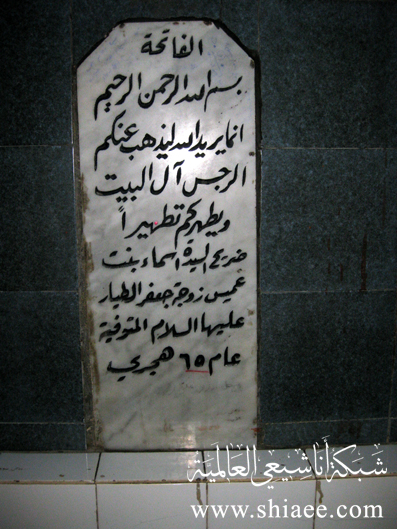 الفاتحة
بسم الله الرحمن الرحيم
انما يريد الله ليذهب عنكم
الرجس آل البيت
ويطهركم تطهيراً
ضريح السيدة اسماء بنت
عميس زوجة جعفر الطيار
عليها السلام المتوفية
عام ٦٥ هجري
شبكة أنا شيعي العالمية
www.shiaee.com